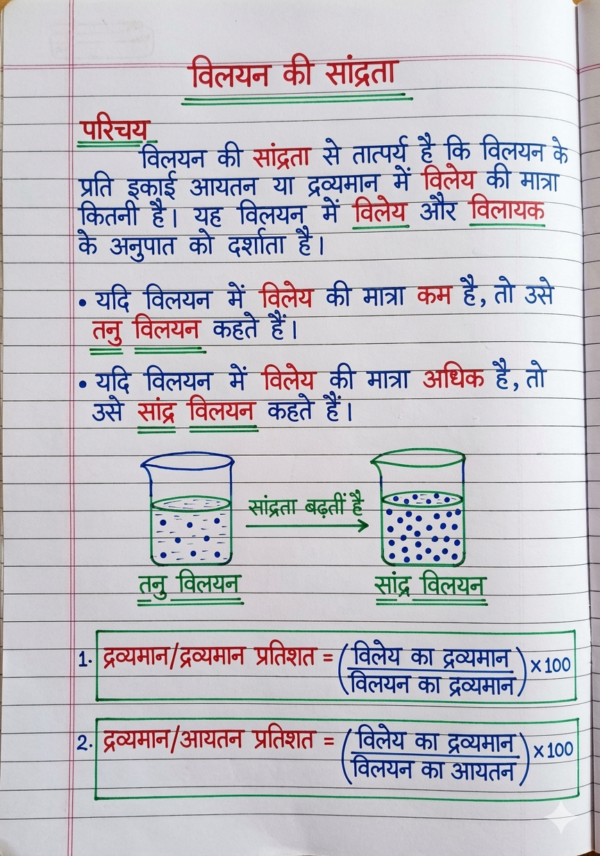 विलयन की सांद्रता
परिचय
विलयन की सांद्रता से तात्पर्य है कि विलयन के
प्रति इकाई आयतन या द्रव्यमान में विलेय की मात्रा
कितनी है। यह विलयन में विलेय और विलायक
के अनुपात को दर्शाता है।
• यदि विलयन में विलेय की मात्रा कम है, तो उसे
तनु विलयन कहते हैं।
• यदि विलयन में विलेय की मात्रा अधिक है, तो
उसे सांद्र विलयन कहते हैं।
सांद्रता बढ़तीं है
तनु विलयन
सांद्र विलयन
1. द्रव्यमान/द्रव्यमान प्रतिशत = (विलेय का द्रव्यमान
विलयन का द्रव्यमान) × 100
2. द्रव्यमान/आयतन प्रतिशत = (विलेय का द्रव्यमान
विलयन का आयतन) × 100